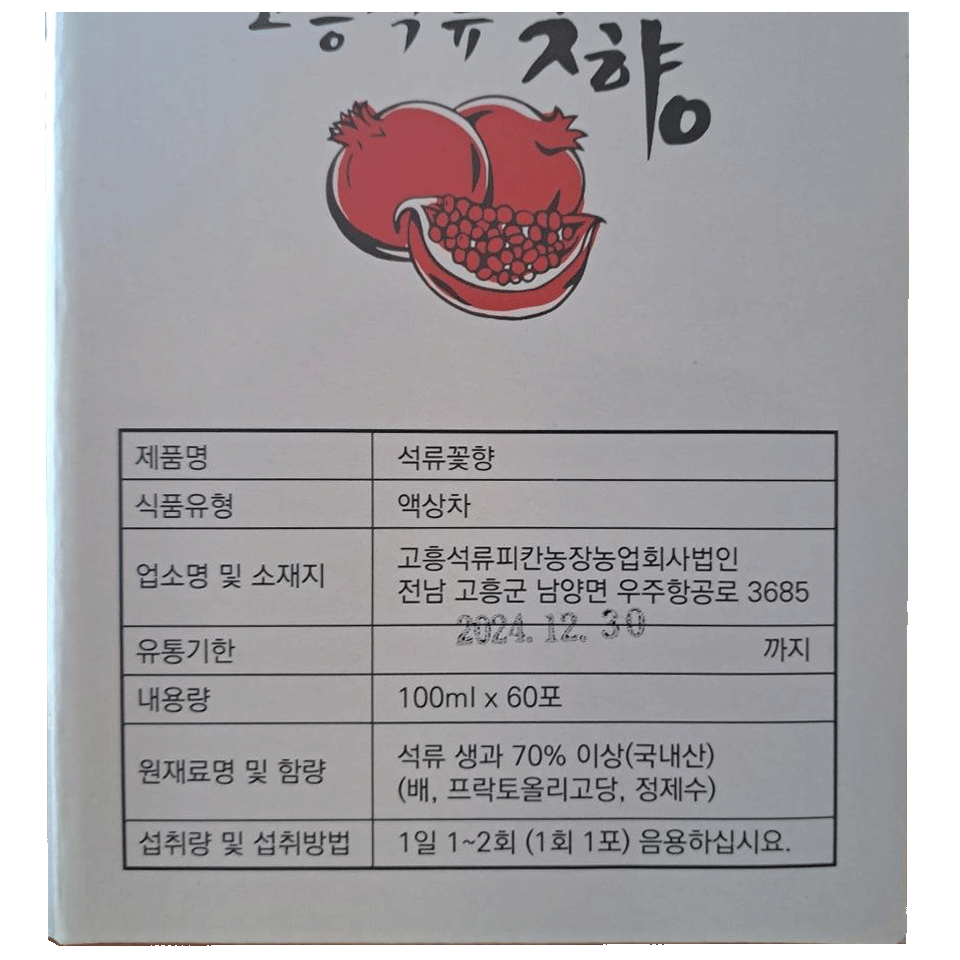 고흥석류
향
제품명 석류꽃향
식품유형 액상차
업소명 및 소재지 고흥석류피칸농장농업회사법인
전남 고흥군 남양면 우주항공로 3685
2024. 12. 30
유통기한 까지
내용량 100ml x 60포
원재료명 및 함량 석류 생과 70% 이상(국내산)
(배, 프락토올리고당, 정제수)
섭취량 및 섭취방법 1일 1~2회 (1회 1포) 음용하십시요.